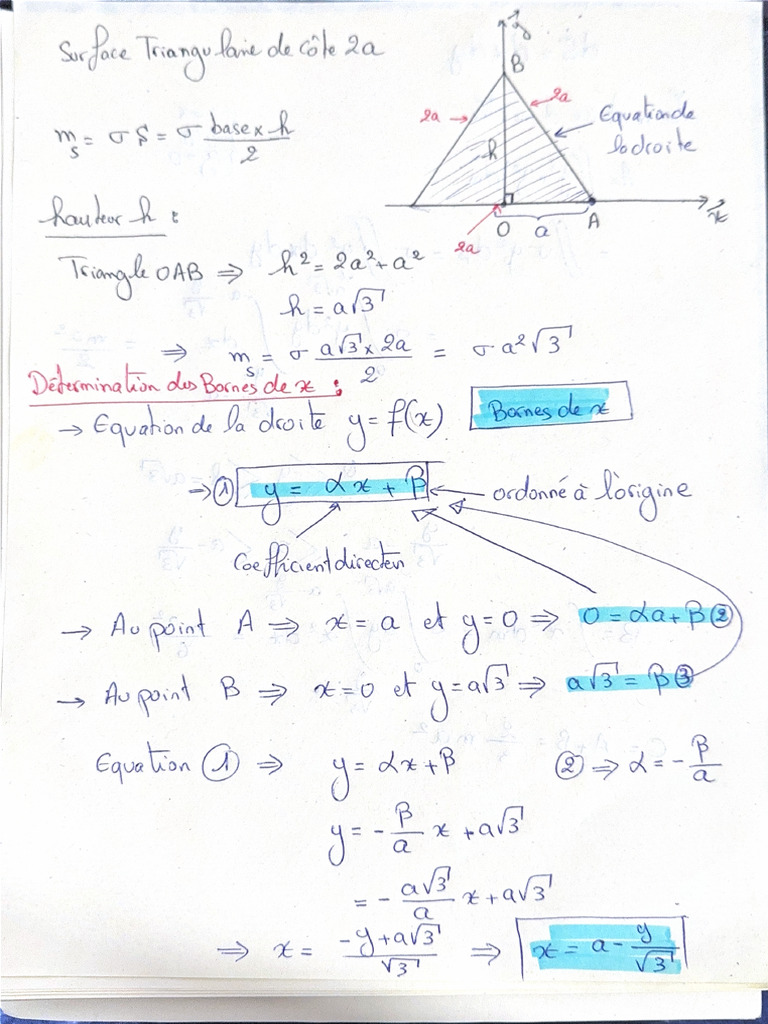 Surface Triangulaire de côte 2a
y
B
2a
2a
Equation de
la droite
h
O
a
A
x
2a
m_s = σ S = σ (base x h)/2
hauteur h :
Triangle OAB ⇒ h² = 2a² + a²
h = a√3
⇒ m_s = σ (a√3 x 2a)/2 = σ a²√3
Détermination des Bornes de x :
→ Equation de la droite y = f(x)
Bornes de x
→ ① y = αx + β ← ordonné à l'origine
Coefficient directeur
→ Au point A ⇒ x = a et y = 0 ⇒ 0 = αa + β ②
→ Au point B ⇒ x = 0 et y = a√3 ⇒ a√3 = β ③
Equation ① ⇒ y = αx + β ② ⇒ α = -β/a
y = -β/a x + a√3
= -(a√3)/a x + a√3
⇒ x = (-y + a√3)/√3 ⇒ x = a - y/√3